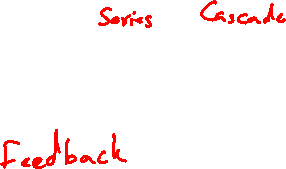 Series Cascade
Feedback